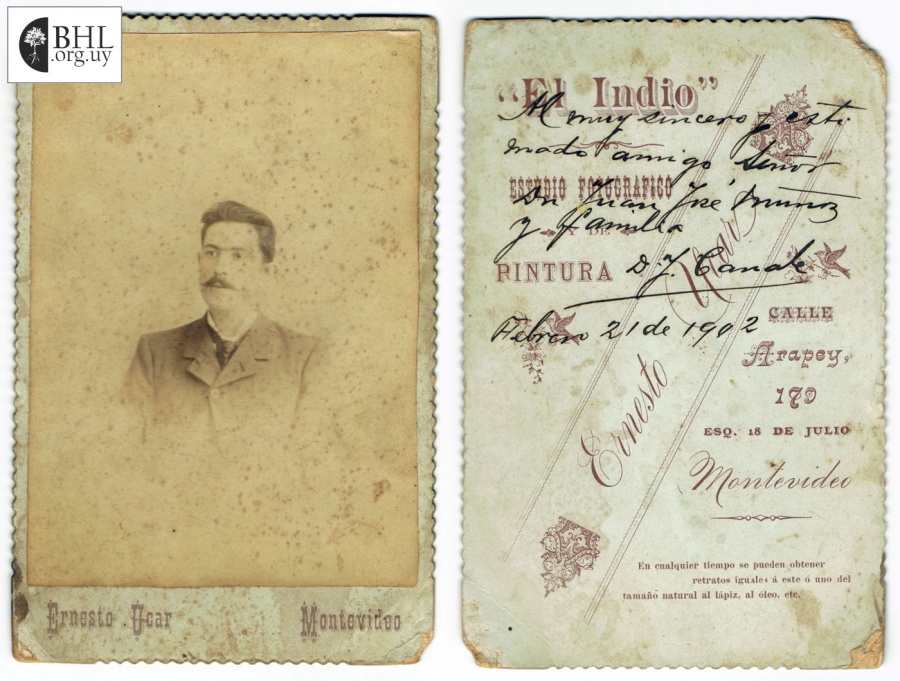 BHL
.org.uy
Ernesto Ucar Montevideo
"El Indio"
Al muy sincero y esti
mado amigo Señor
ESTUDIO FOTOGRAFICO
Dn Juan José Muñoz
y familia
Y DE
PINTURA
D. J. Canale
Febrero 21 de 1902
Ernesto Ucar
CALLE
Arapey,
179
ESQ. 18 DE JULIO
Montevideo
En cualquier tiempo se pueden obtener
retratos iguales á este ó uno del
tamaño natural al lápiz, al óleo, etc.